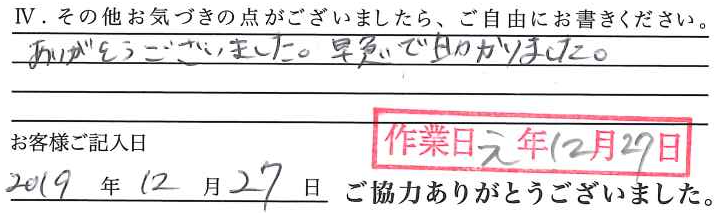 Ⅳ．その他お気づきの点がございましたら、ご自由にお書きください。
ありがとうございました。早急で助かりました。
お客様ご記入日
作業日元年12月27日
2019年12月27日
ご協力ありがとうございました。